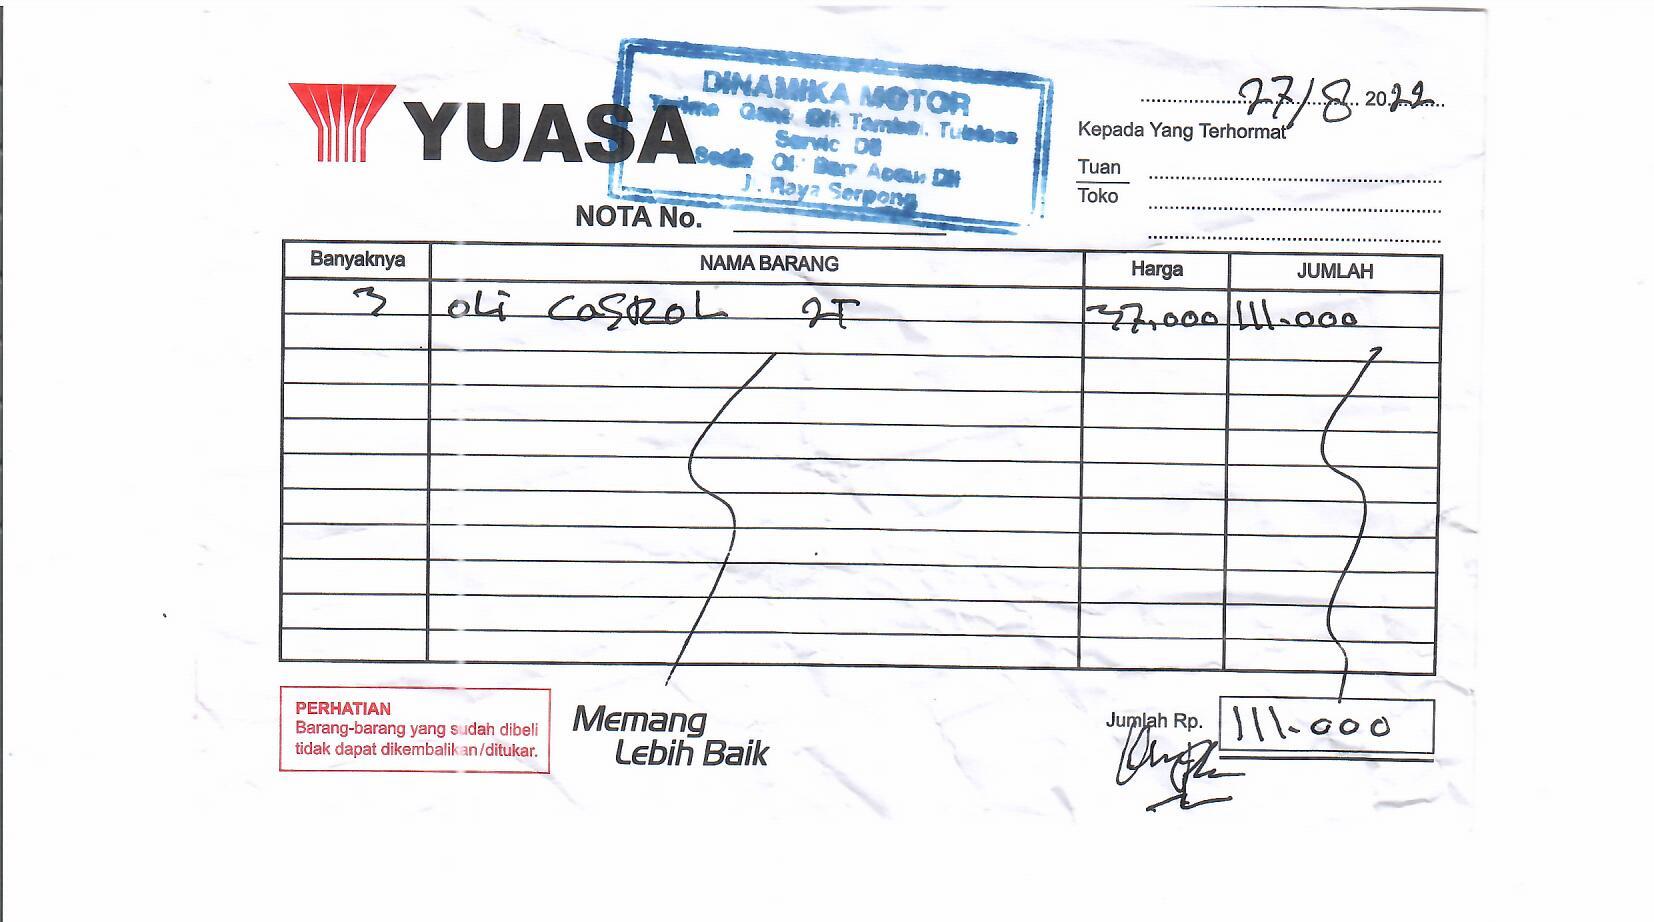 YUASA
DINAMIKA MOTOR
Terima Tambal Tubless
Servic Dll
Dll
Raya Serpong
27/8 2022
Kepada Yang Terhormat
Tuan
Toko
NOTA No.
Banyaknya NAMA BARANG Harga JUMLAH
3 OLI COSROL 2T 37.000 111.000
PERHATIAN
Barang-barang yang sudah dibeli
tidak dapat dikembalikan/ditukar.
Memang
Lebih Baik
Jumlah Rp. 111.000